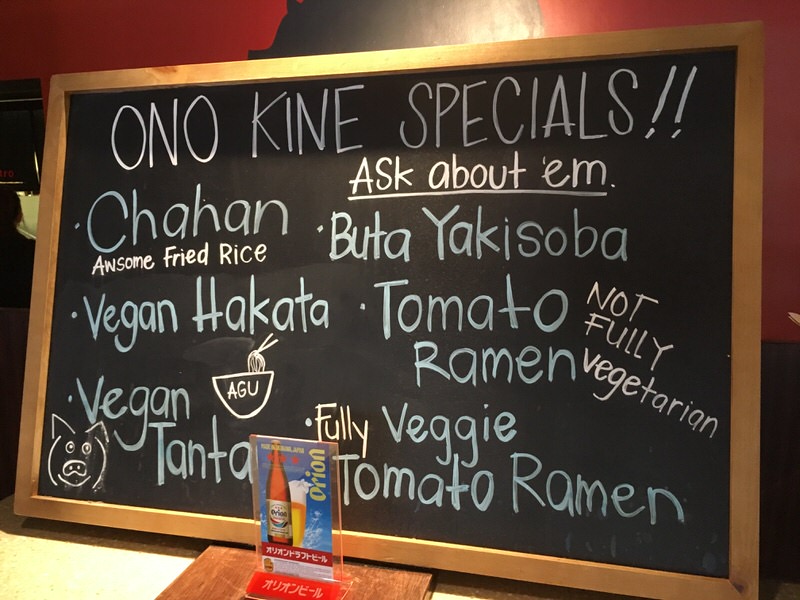 ONO KINE SPECIALS!!
Ask about 'em.
· Chahan
Awsome Fried Rice
· Vegan Hakata
AGU
· Vegan
Tanta
· Buta Yakisoba
· Tomato
Ramen
NOT
FULLY
Vegetarian
· Fully Veggie
Tomato Ramen
Orion
Orion
オリオンドラフトビール
オリオンビール